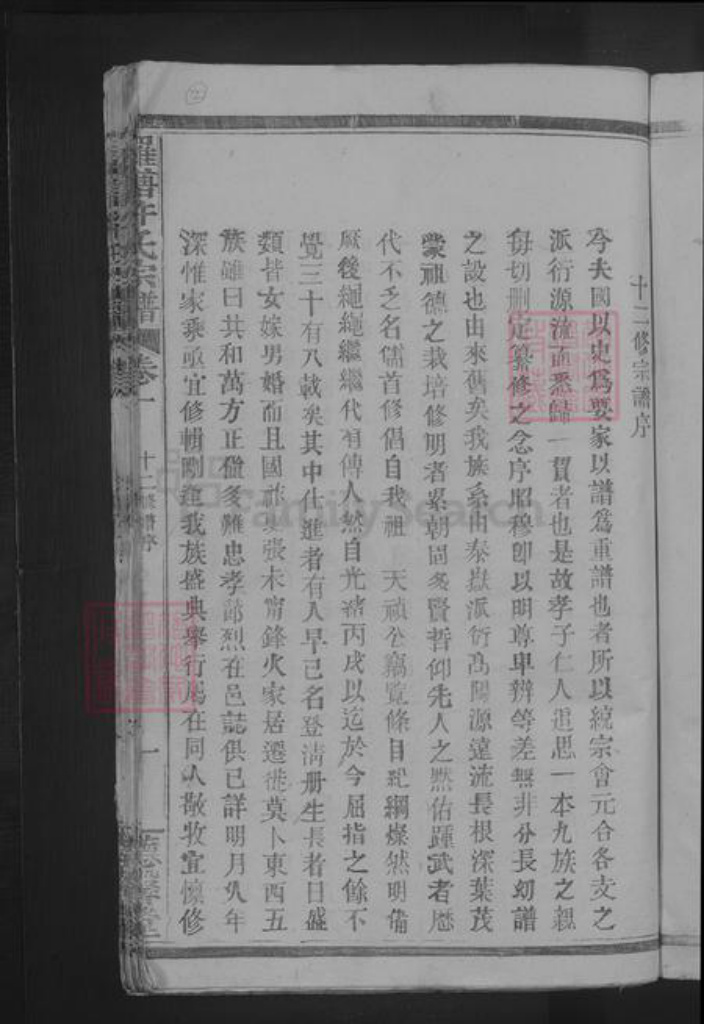 十二修宗譜序
今夫國以史爲要家以譜爲重譜也者所以統宗會元合各支之
派衍源流而悉歸一貫者也是故孝子仁人追思一本九族之親
每切刪定纂修之念序昭穆卽以明尊卑辨等差無非分長幼譜
之設也由來舊矣我族系由泰嶽派衍高陽源遠流長根深葉茂
蒙祖德之栽培修明者累朝固多賢哲仰先人之默佑踵武者歷
代不乏名儒首修倡自我祖 天頑公竊覽條目紀綱燦然明備
厥後繩繩繼繼代有傳人然自光緒丙戌以迄於今屈指之餘不
覺三十有八載矣其中仕進者有人早已名登淸册生長者日盛
類皆女嫁男婚而且國祚更張未甯鋒火家居遷徙莫卜東西五
族雖曰共和萬方正值多難忠孝節烈在邑誌俱已詳明月久年
深惟家乘亟宜修輯剛逢我族盛典舉行凡在同人敬牧宜懷修
羅舊許氏宗譜
卷一
十二修譜序
一
FamilySearch